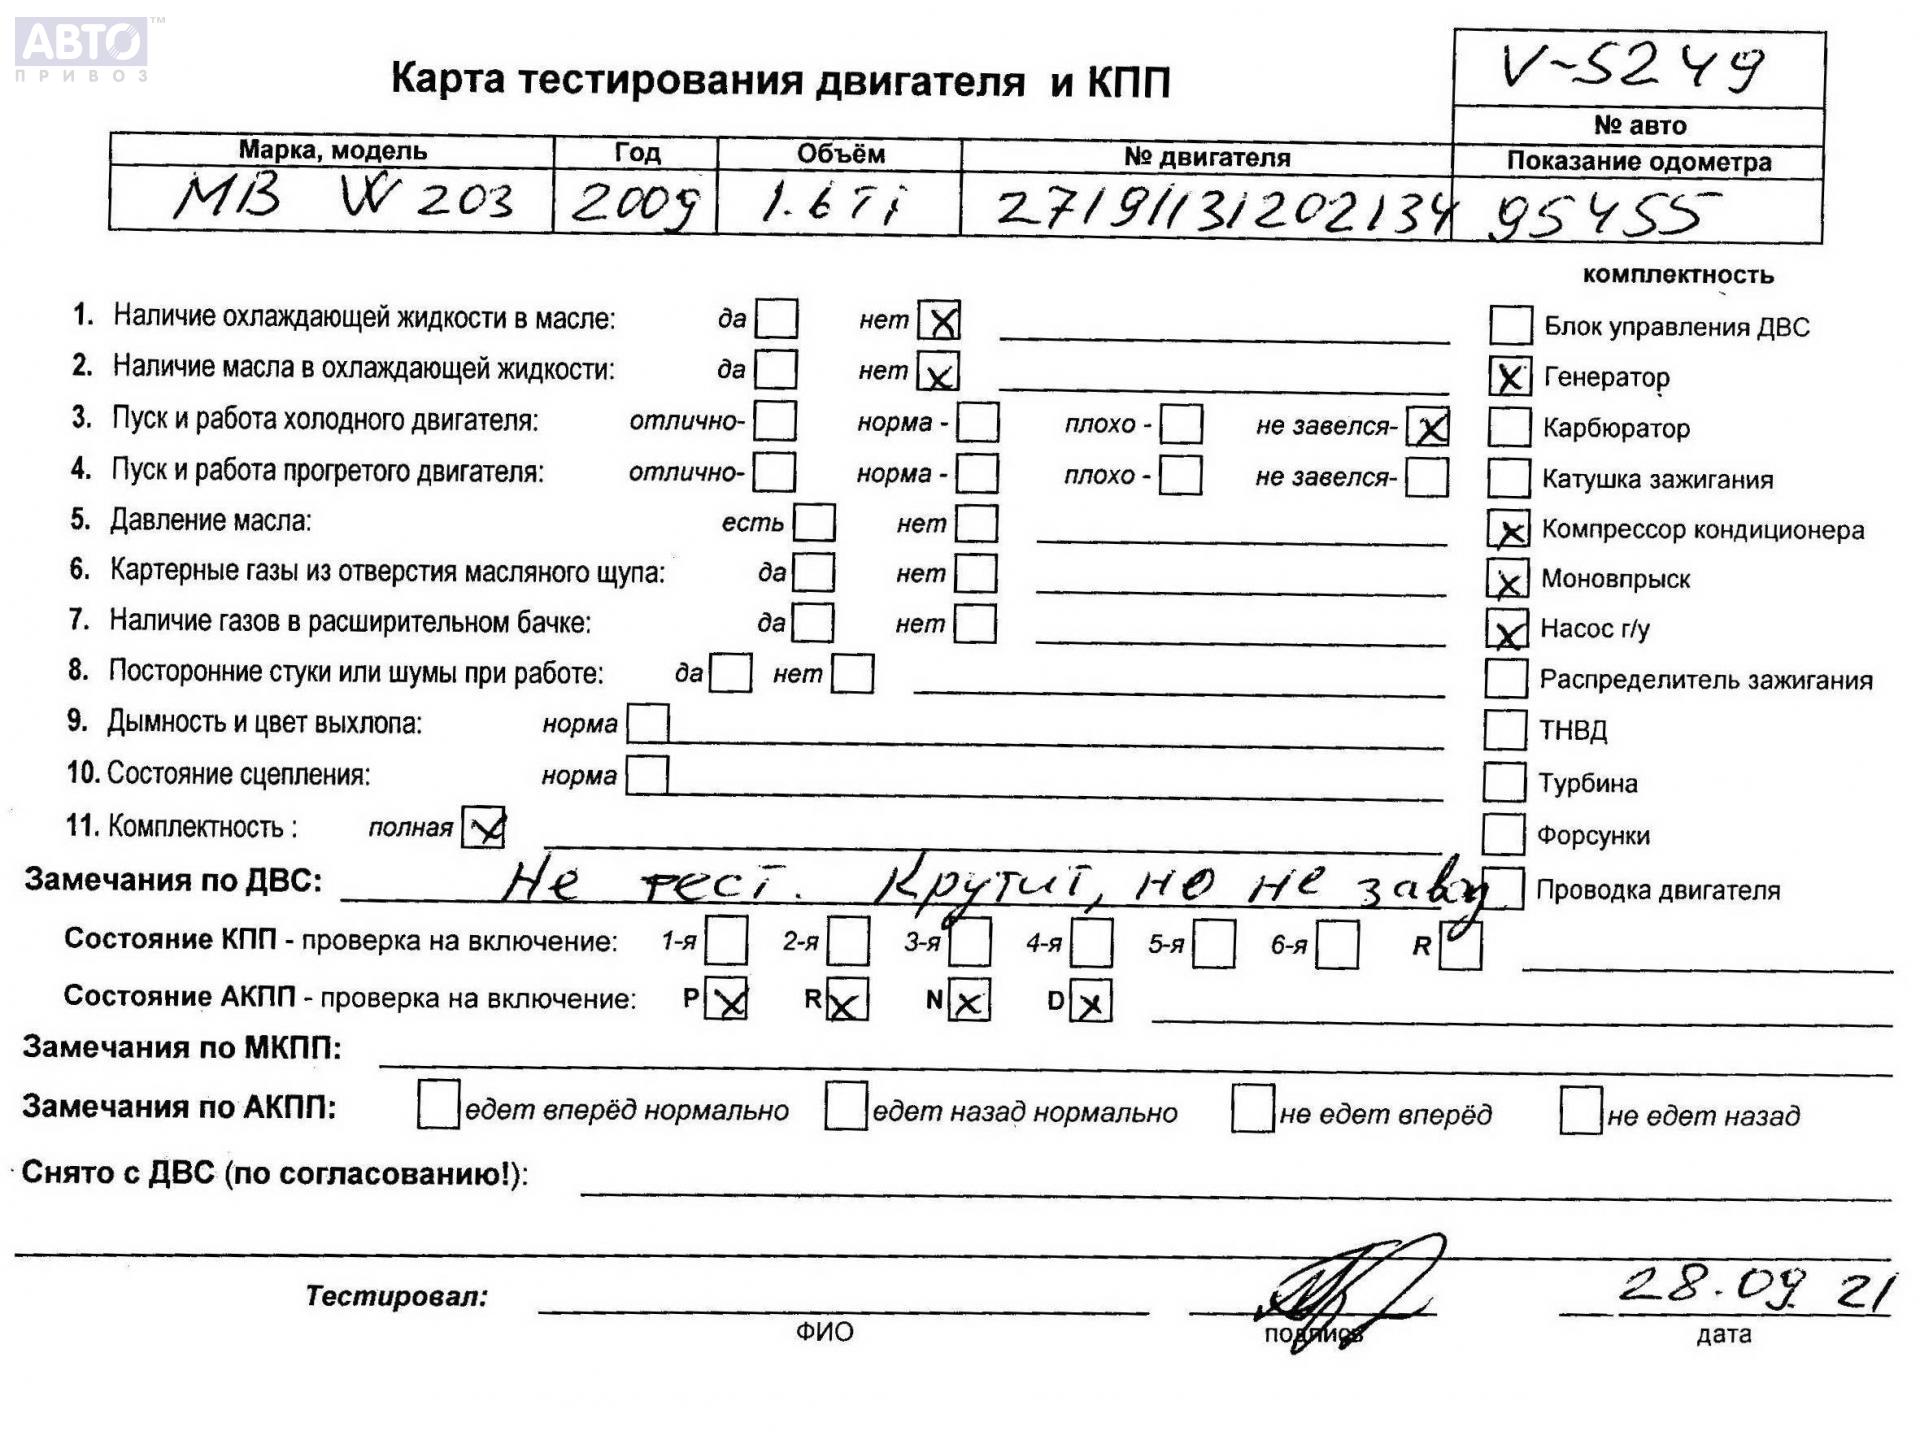 АВТО™
ПРИВОЗ
Карта тестирования двигателя и КПП
V-5249
№ авто
Марка, модель Год Объём № двигателя Показание одометра
MB W203 2009 1.6Ti 27191131202134 95455
комплектность
1. Наличие охлаждающей жидкости в масле: да нет X
Блок управления ДВС
2. Наличие масла в охлаждающей жидкости: да нет X
X Генератор
3. Пуск и работа холодного двигателя: отлично- норма - плохо - не завелся- X
Карбюратор
4. Пуск и работа прогретого двигателя: отлично- норма - плохо - не завелся-
Катушка зажигания
5. Давление масла: есть нет
X Компрессор кондиционера
6. Картерные газы из отверстия масляного щупа: да нет
X Моновпрыск
7. Наличие газов в расширительном бачке: да нет
X Насос г/у
8. Посторонние стуки или шумы при работе: да нет
Распределитель зажигания
9. Дымность и цвет выхлопа: норма
ТНВД
10. Состояние сцепления: норма
Турбина
11. Комплектность : полная X
Форсунки
Замечания по ДВС: Не тест. Крутит, но не завод
Проводка двигателя
Состояние КПП - проверка на включение: 1-я 2-я 3-я 4-я 5-я 6-я R
Состояние АКПП - проверка на включение: P X R X N X D X
Замечания по МКПП:
Замечания по АКПП: едет вперёд нормально едет назад нормально не едет вперёд не едет назад
Снято с ДВС (по согласованию!):
Тестировал: 28.09.21
ФИО подпись дата